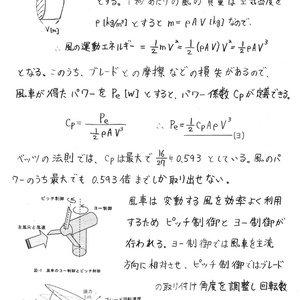 とする。1秒あたりの風の質量は空気密度を
V[m]
ρ[kg/m³]とするとm=ρAV[kg]なので、
∴風の運動エネルギー=½mV²=½(ρAV)V²=½ρAV³
となる。このうち、ブレードとの摩擦などの損失があるので、
風車が得たパワーをPe[W]とすると、パワー係数Cpが定義できる。
Cp=Pe/(½ρAV³) ∴Pe=½CpAρV³ (ヨ)
ベッツの法則では、Cpは最大で16/27≒0.593としている。風のパ
ワーのうち最大でも0.593倍までしか取り出せない。
ピッチ制御
ヨー制御
主風向と風速
図-1 風車のヨー制御とピッチ制御
風車は変動する風を効率よく利
用するためピッチ制御とヨー制御が
行われる。ヨー制御では風車を主流
方向に相対させ、ピッチ制御ではブレード
の取り付け角度を調整し回転数
揚力